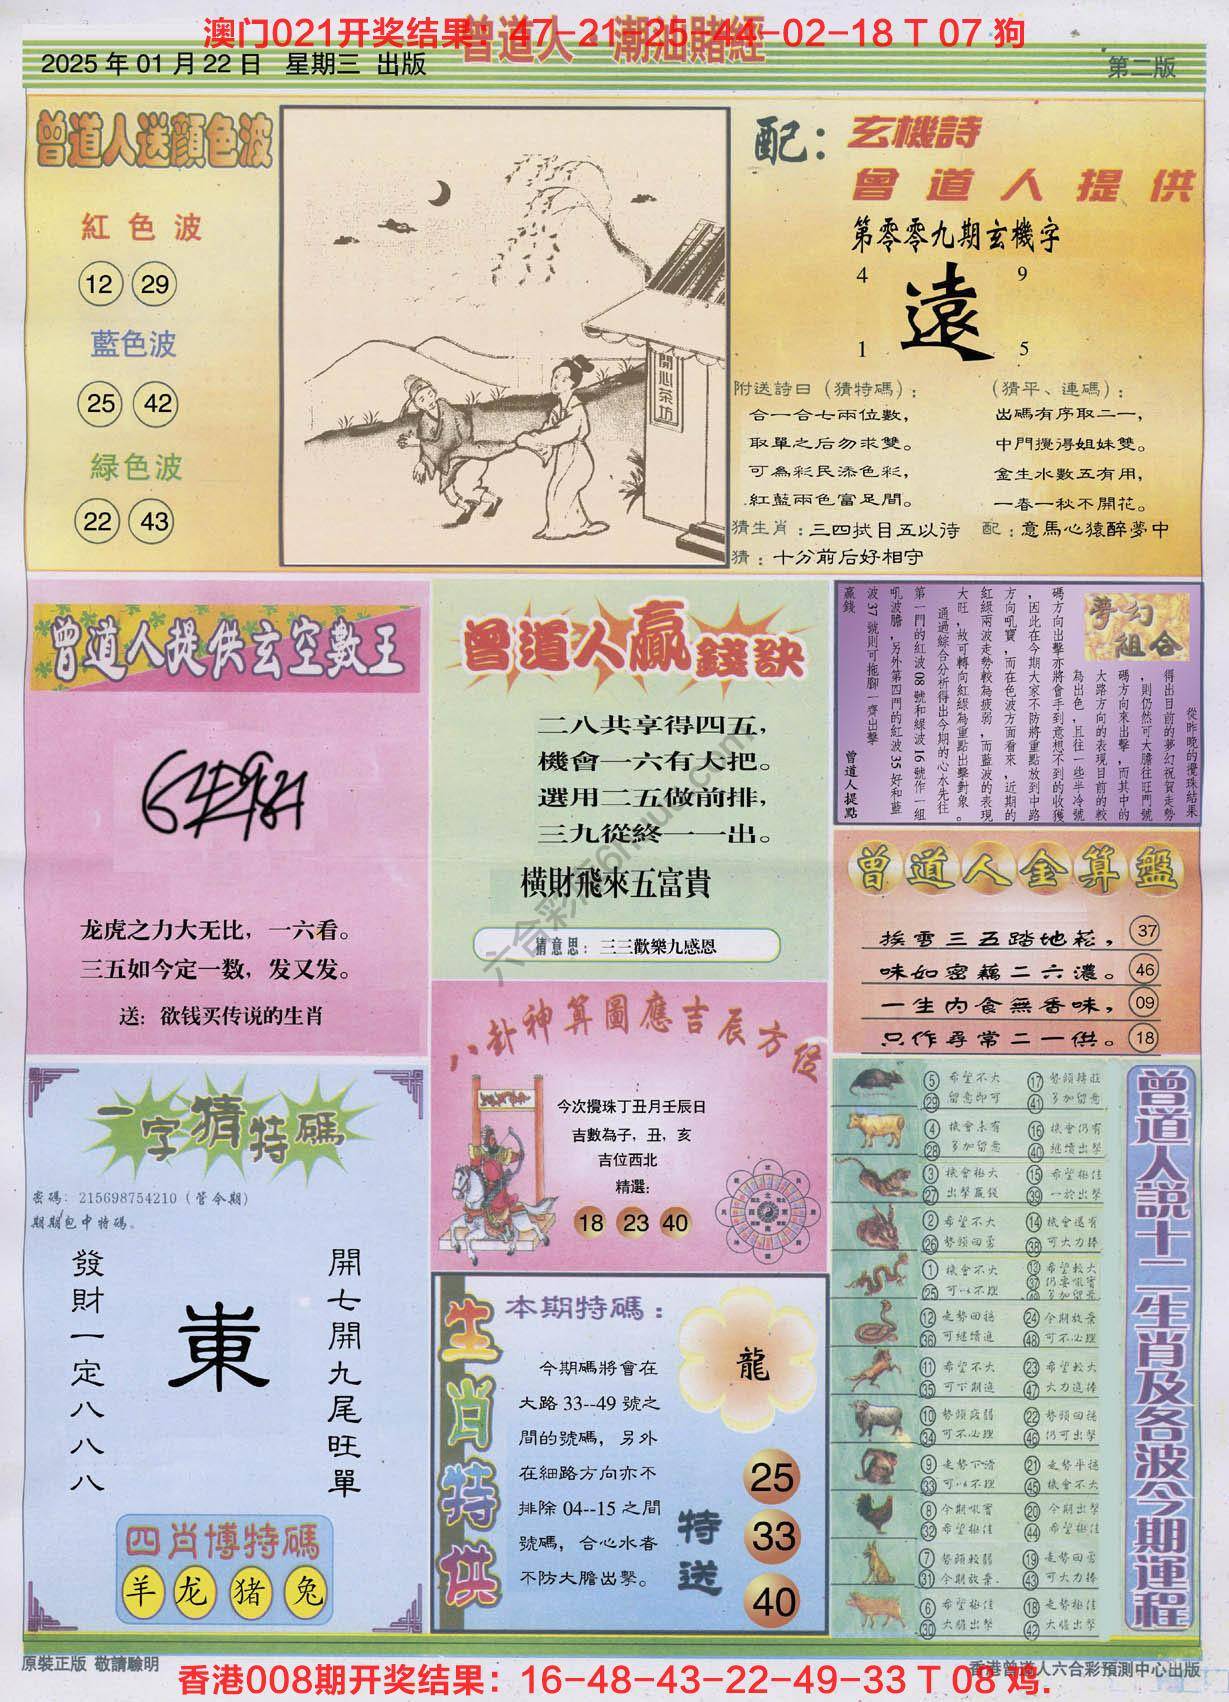 澳门021开奖结果：47-21-25-44-02-18 T 07 狗
曾道人 潮汕賭經
2025 年 01 月 22 日 星期三 出版
第二版
曾道人送顏色波
紅色波
12 29
藍色波
25 42
緑色波
22 43
開心茶坊
配：玄機詩
曾道人提供
第零零九期玄機字
4 9
遠
1 5
附送詩曰（猜特碼）：
合一合七兩位數，
取單之后勿求雙。
可為彩民添色彩，
紅藍兩色富足間。
（猜平、連碼）：
出碼有序取二一，
中門攪得姐妹雙。
金生水數五有用，
一春一秋不開花。
猜生肖：三四拭目五以待
配：意馬心猿醉夢中
猜：十分前后好相守
曾道人提供玄空數王
龙虎之力大无比，一六看。
三五如今定一数，发又发。
送：欲钱买传说的生肖
曾道人贏錢訣
二八共享得四五，
機會一六有大把。
選用二五做前排，
三九從終一一出。
橫財飛來五富貴
猜意思：三三歡樂九感恩
夢幻組合
從昨晚的攪珠結果
得出目前的夢幻祝賀走勢
，則仍然可大膽往旺門號
碼方向來出擊，而其中的
大路方向的表現目前的較
為出色，且往一些半冷號
碼方向出擊亦將會手到意想不到的收獲
，因此在今期大家不防將重點放到中路
方向吼寶，而在色波方面看來，近期的
紅綠兩波走勢較為疲弱，而藍波的表現
大旺，故可轉向紅綠為重點出擊對象。
通過綜合分析得出今期的心水先往
第一門的紅波 08 號和緑波 16 號作一組
吼波膽，另外第四門的紅波 35 好和藍
波 37 號則可拖腳一齊出擊
贏錢
曾道人提點
曾道人金算盤
挨雪三五踏地菘， 37
味如蜜藕二六濃。 46
一生內食無香味， 09
只作尋常二一供。 18
八卦神算圖應吉辰方位
今次攪珠丁丑月壬辰日
吉數為子，丑，亥
吉位西北
精選：
18 23 40
一字猜特碼
密碼：215698754210（管今期）
期期包中特碼。
開七開九尾旺單
東
發財一定八八八
四肖博特碼
羊 龙 猪 兔
生肖特供
本期特碼：
今期碼將會在
大路 33--49 號之
間的號碼，另外
在細路方向亦不
排除 04--15 之間
號碼，合心水者
不防大膽出擊。
龍
特送
25
33
40
曾道人説十二生肖及各波今期運程
5 希望不大 17 勢頭轉旺
29 留意即可 41 多加留意
4 機會未有 16 機會仍有
28 多加留意 40 继續出擊
3 機會極大 15 希望極佳
27 出擊贏錢 39 一於出擊
2 希望不大 14 機會還有
26 勢頭回勇 38 可大力捧
1 機會不大 13 希望較大
25 可以不理 37 仍要吼寶
多加留意
12 走勢回穩 24 今期放棄
36 可继續追 48 可不必理
11 希望不大 23 希望較大
35 可下期追 47 大力追捧
10 勢頭疲弱 22 勢頭回穩
34 可不必理 46 仍可出擊
9 走勢下滑 21 走勢平穩
33 可以不理 45 機會不大
8 今期吼寶 20 今期出擊
32 希望極佳 44 希望極佳
7 勢頭較弱 19 走勢回勇
31 今期放棄. 43 可大力捧
6 希望極佳 18 走勢極佳
30 大膽出擊 42 大膽出擊
六合彩庫6htuc.com
原裝正版 敬請驗明
香港曾道人六合彩預測中心出版
香港008期开奖结果：16-48-43-22-49-33 T 08 鸡.